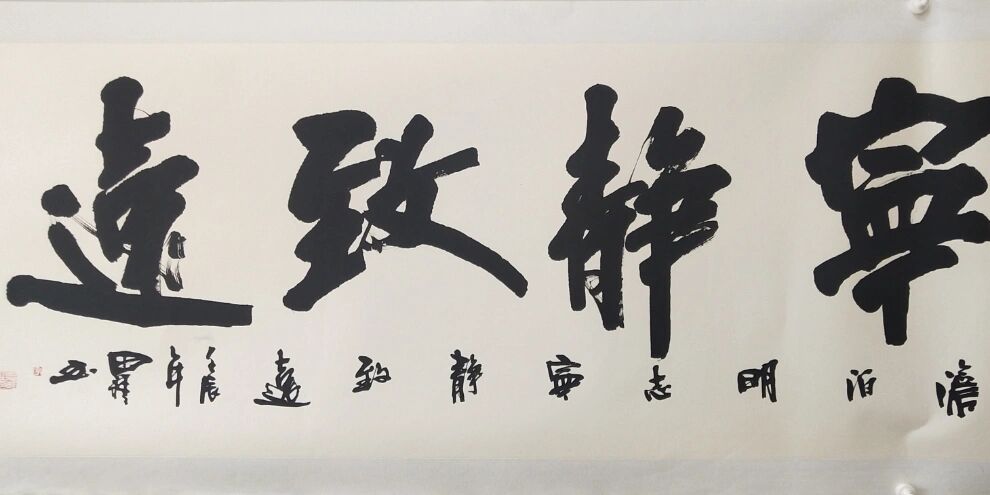 寧靜致遠
澹泊明志寧靜致遠壬辰年